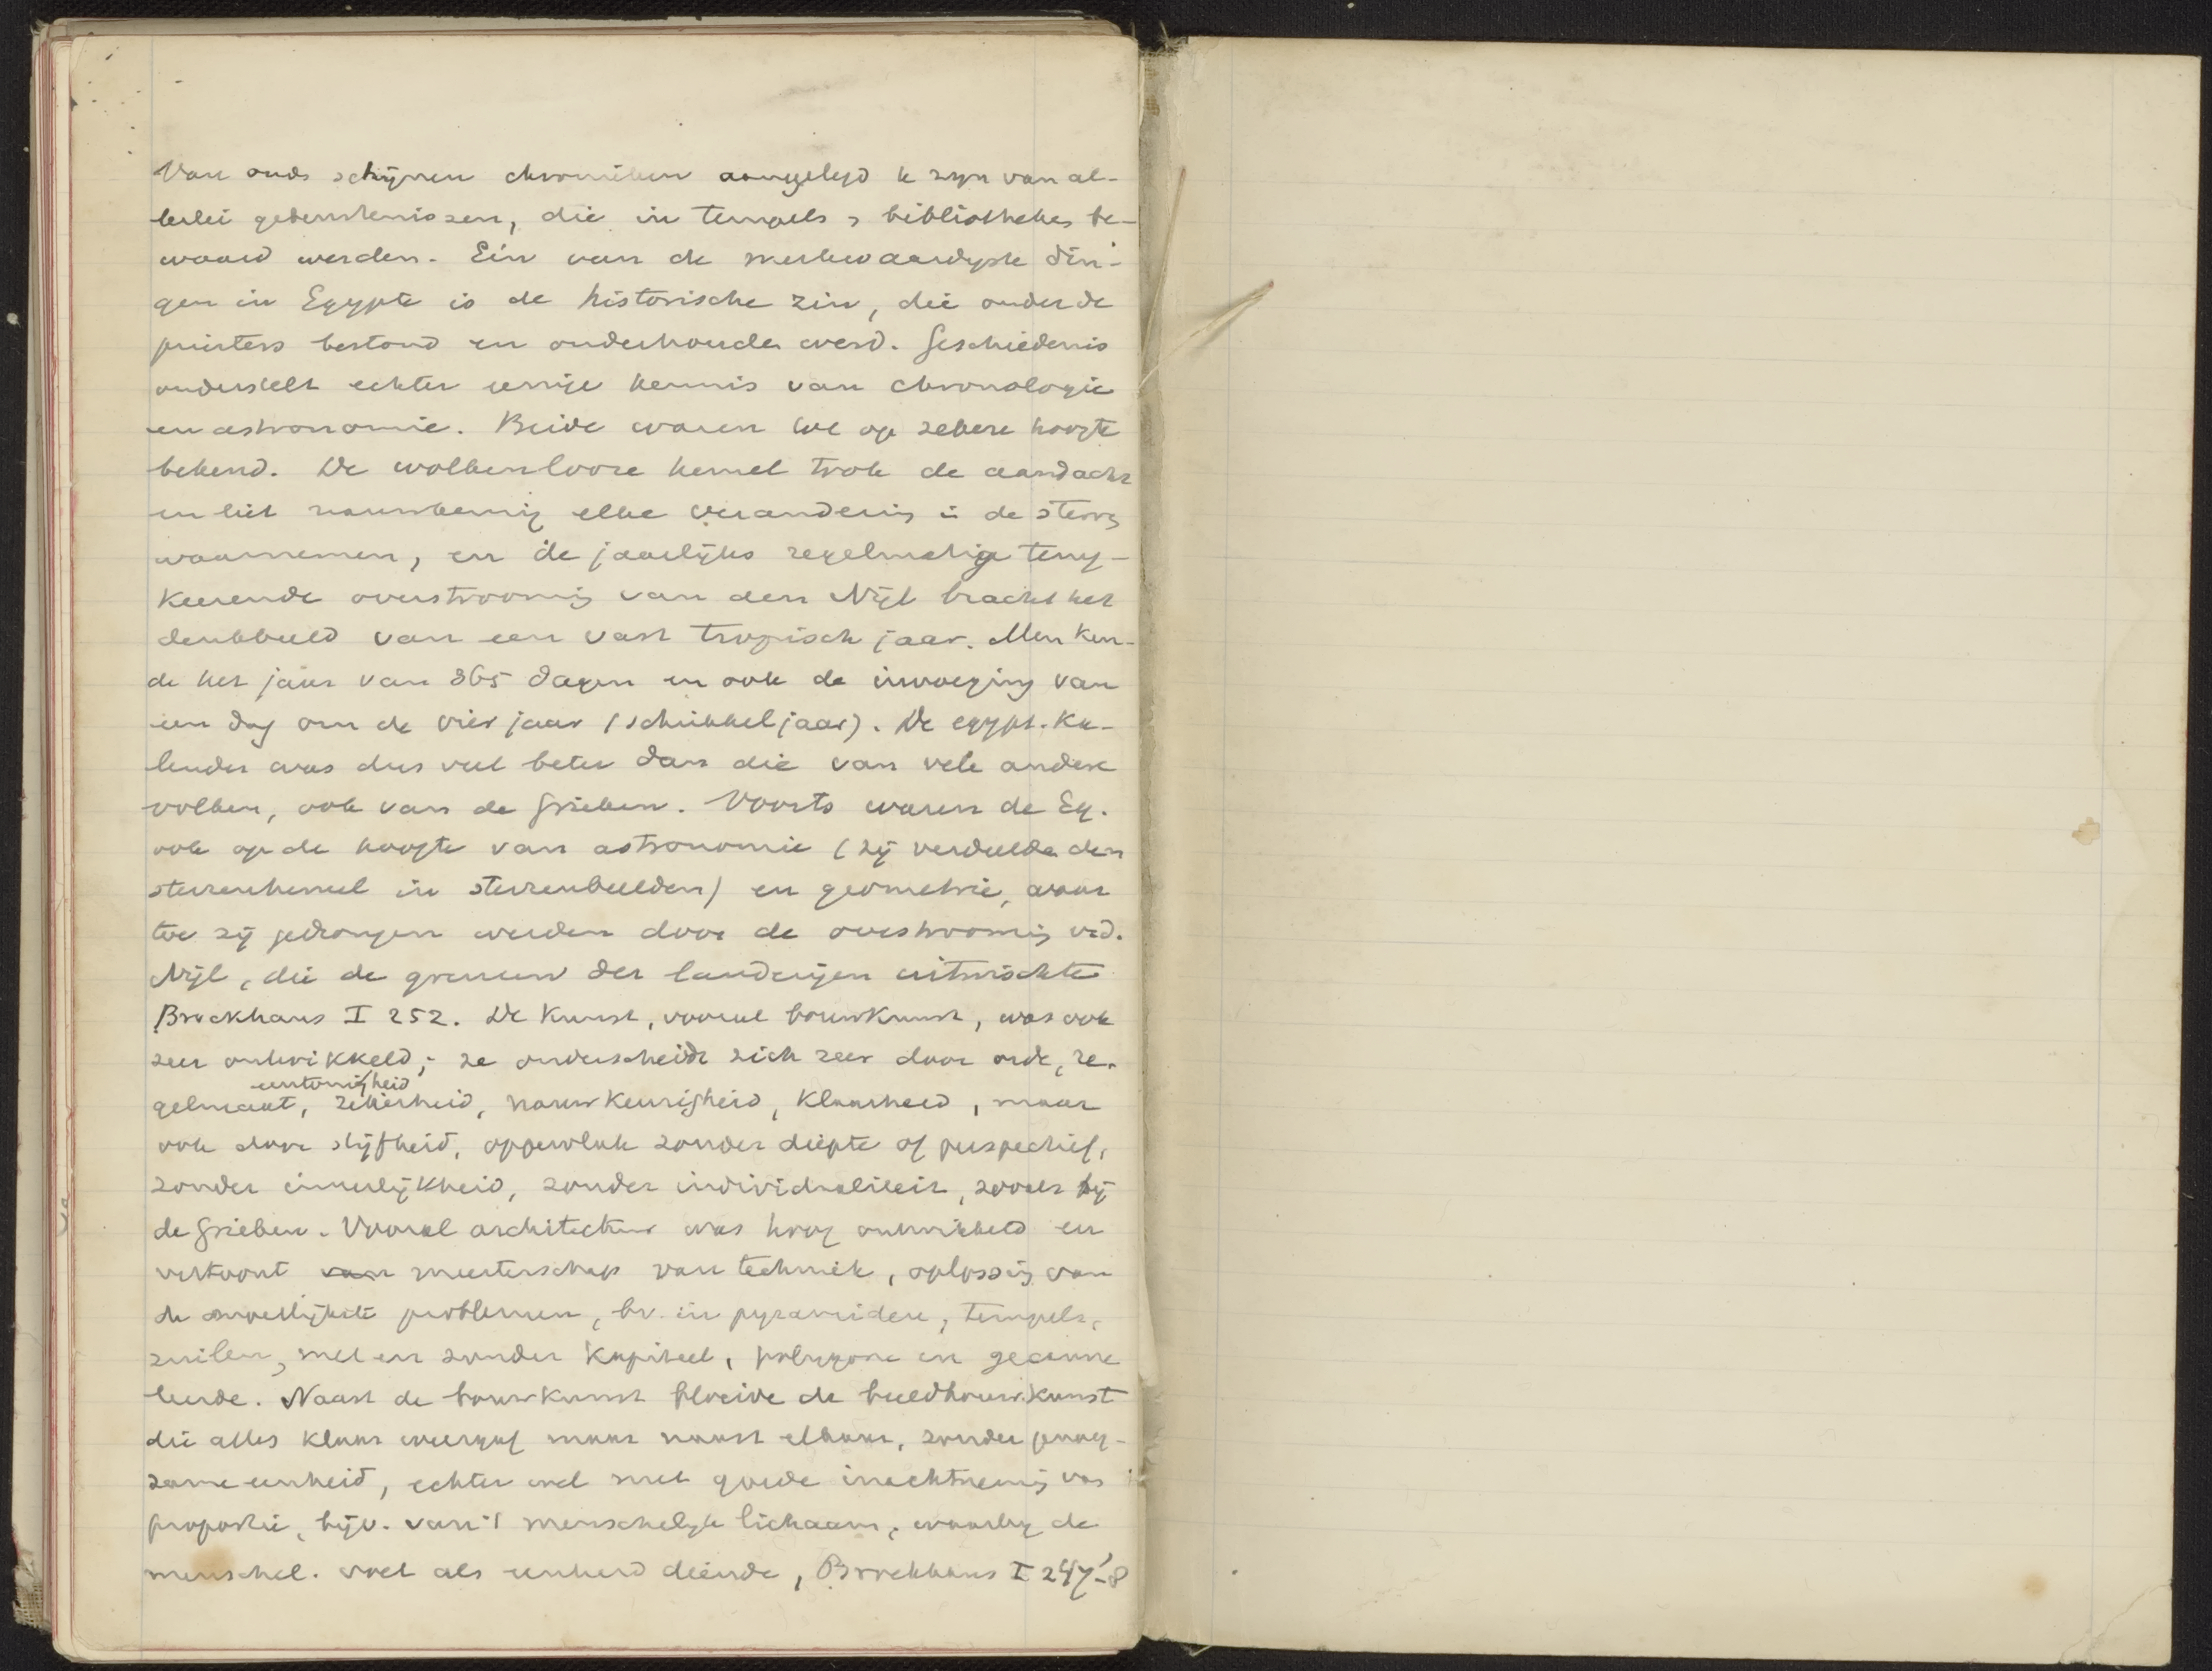 Van ouds schijnen chronieken aangelegd te zijn van al-
lerlei gebeurtenissen, die in tempels & bibliotheken be-
waard werden. Eén van de merkwaardigste din-
gen in Egypte is de historische zin, die onder de
priesters bestond en onderhouden werd. Geschiedenis
onderstelt echter eenige kennis van chronologie
en astronomie. Beide waren tot op zekere hoogte
bekend. De wolkenlooze hemel trok de aandacht
en liet nauwkeurig elke verandering in de sterren
waarnemen, en de jaarlijks regelmatig terug-
keerende overstrooming van den Nijl bracht het
denkbeeld van een vast tropisch jaar. Men ken-
de het jaar van 365 dagen en ook de invoeging van
een dag om de vier jaar (schrikkeljaar). De egypt. ka-
lender was dus veel beter dan die van vele andere
volken, ook van de Grieken. Voorts waren de Eg.
ook op de hoogte van astronomie (zij verdeelden den
sterrenhemel in sterrenbeelden) en geometrie, waar
toe zij gedrongen werden door de overstrooming v.d.
Nijl, die de grenzen der landerijen uitwischte
Brockhaus I 252. De kunst, vooral bouwkunst, was ook
zeer ontwikkeld; ze onderscheidt zich zeer door orde, re-
eentonigheid
gelmaat, zekerheid, nauwkeurigheid, klaarheid, maar
ook door stijfheid, oppervlak zonder diepte of perspectief,
zonder innerlijkheid, zonder individualiteit, zooals bij
de Grieken. Vooral architectuur was hoog ontwikkeld en
vertoont van meesterschap van techniek, oplossing van
de moeilijkste problemen, bv. in pyramiden, tempels,
zuilen, met en zonder kapiteel, polygone en gecanne
leerde. Naast de bouwkunst bloeide de beeldhouwkunst
die alles klaar weergaf maar naast elkaar, zonder
zame eenheid, echter wel met goede inachtneming van
proportie, bijv. van 't menschelijk lichaam, waarbij de
menschel. voet als eenheid diende, Brockhaus I 247-8